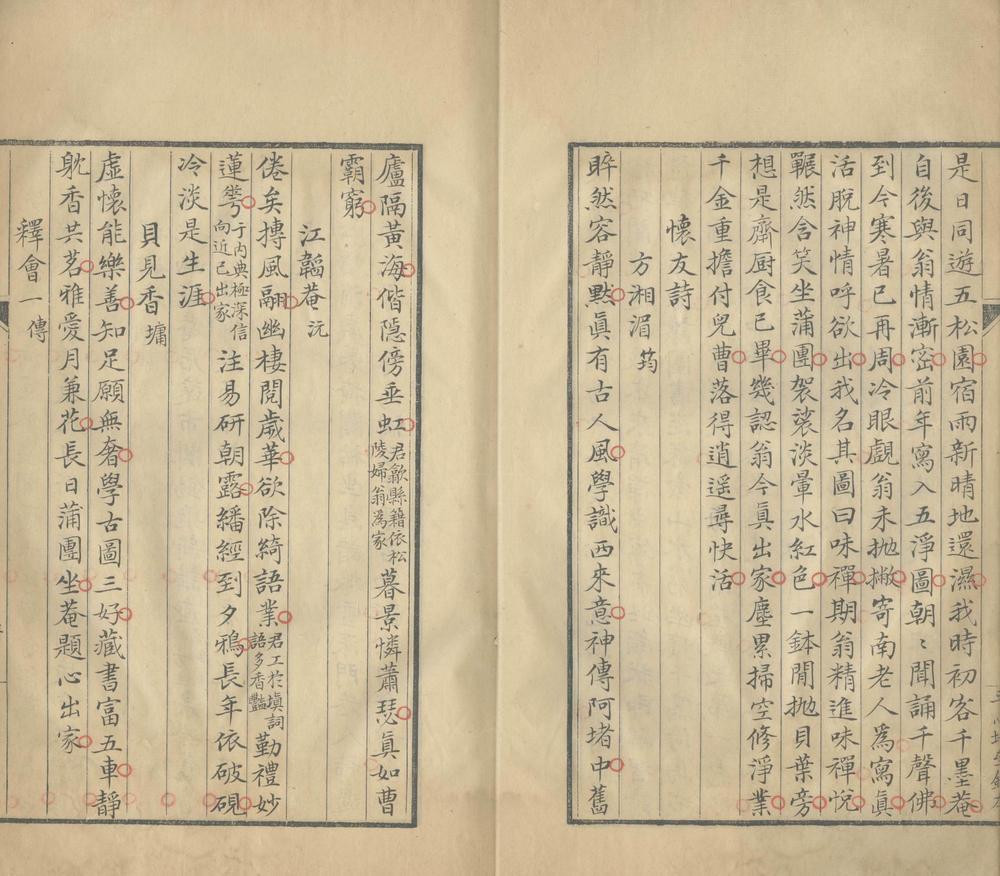 是日同遊五松園宿雨新晴地還濕我時初客千墨菴
自後與翁情漸密前年寫入五淨圖朝〻聞誦千聲佛
到今寒暑已再周冷眼覷翁未抛撇寄南老人爲寫眞
活脫神情呼欲出我名其圖曰味禪期翁精進味禪悅
冁然含笑坐蒲團袈裟淡暈水紅色一鉢閒抛貝葉旁
想是齋厨食已畢幾認翁今眞出家塵累掃空修淨業
千金重擔付兒曹落得逍遥尋快活
懷友詩
方湘湄 筠
睟然容靜默眞有古人風學識西來意神傳阿堵中舊
廬隔黃海偕隱傍垂虹君歙縣籍依松陵婦翁爲家暮景憐蕭瑟眞如曹
霸窮
江韜菴 沅
倦矣摶風翮幽棲閱歲華欲除綺語業君工於塡詞語多香豔勤禮妙
蓮華于内典極深信向近已出家注易研朝露繙經到夕鴉長年依破硯
冷淡是生涯
貝見香 墉
虛懷能樂善知足願無奢學古圖三好藏書富五車靜
躭香共茗雅愛月兼花長日蒲團坐菴題心出家
釋會一 傳